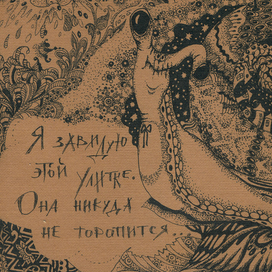 Я завидую
этой улитке.
Она никуда
не торопится...